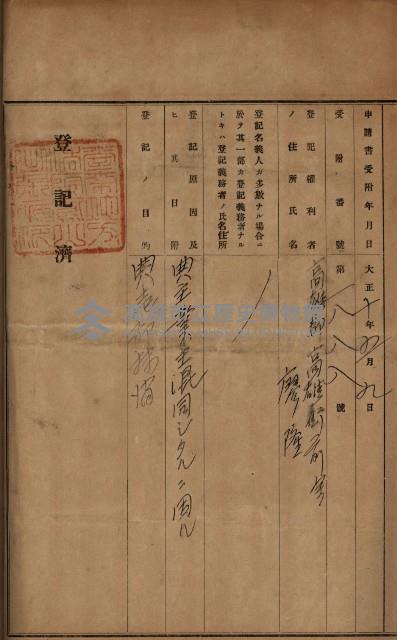 申請書受附年月日 大正十年五月九日
受附番號 第一八八八號
登記權利者
ノ住所氏名
高雄郡高雄街前金
廖隆
登記名義人カ多數ナル場合ニ
於テ其一部カ登記義務者ナル
トキハ登記義務者ノ氏名住所
登記原因及
ヒ其日附
典主業主混同シタルニ因ル
登記ノ目的 典
登記濟
高雄市立歷史博物館